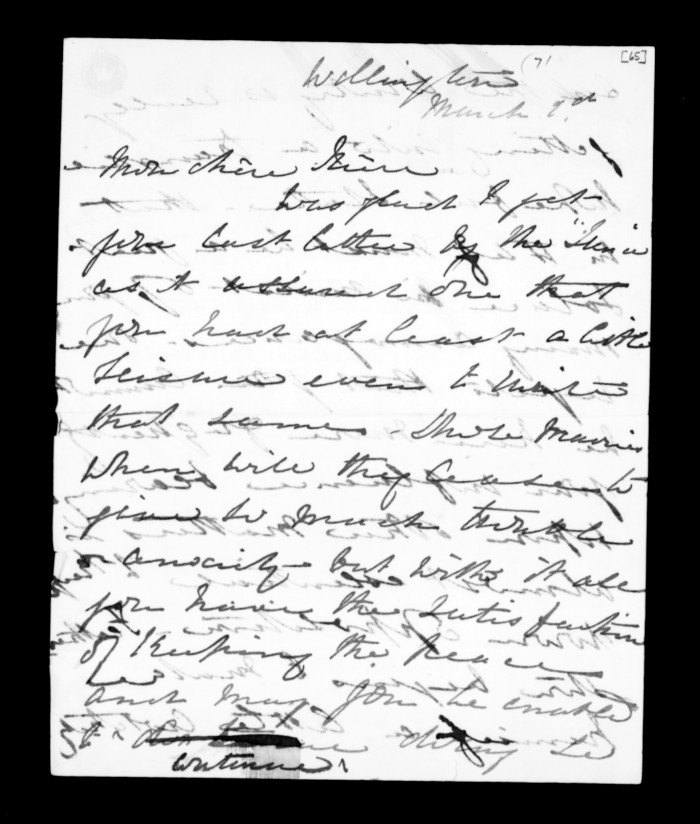 [65]
(7)
Wellington
March 9th
Mon chère frère
Was glad to get
your last letter by the "Luna"
as it assured one that
you had at least a little
leisure even to write
that same. Those Maories
when will they cease to
give so much trouble
& anxiety but with it all
you have the satisfaction
of keeping the peace
and may you be enabled
to continue doing so